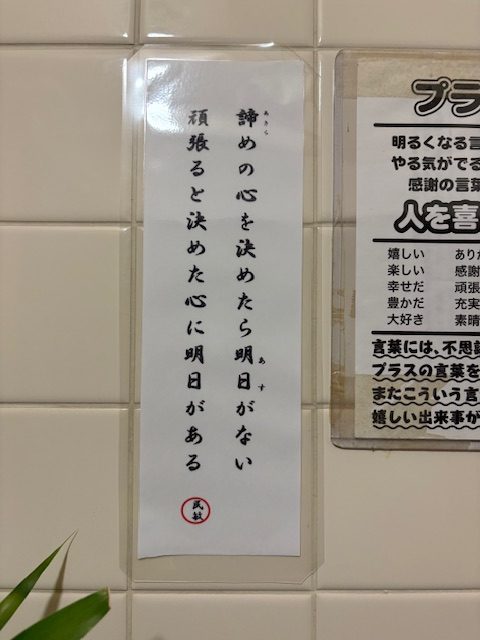 諦めの心を決めたら明日がない
頑張ると決めた心に明日がある
あきら
あす
民敏
プラ
明るくなる言
やる気がでる
感謝の言葉
人を喜
嬉しい あり
楽しい 感謝
幸せだ 頑張
豊かだ 充実
大好き 素晴
言葉には、不思議
プラスの言葉を
またこういう言
嬉しい出来事が